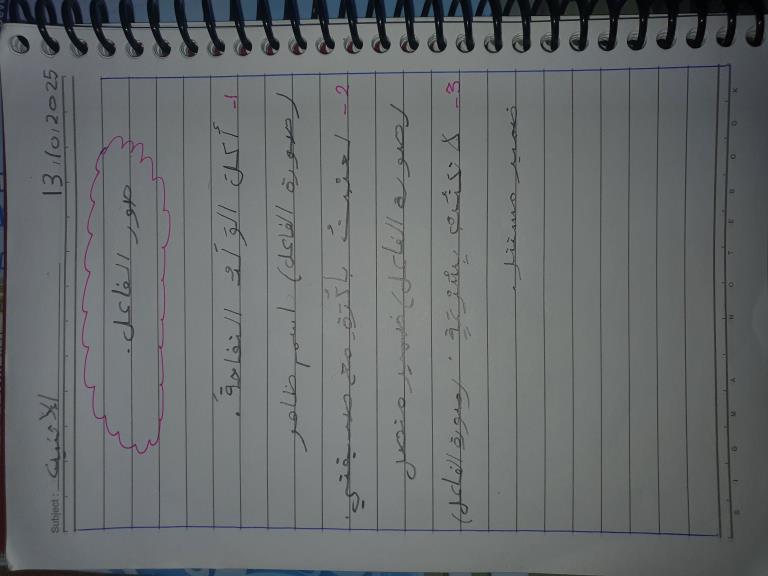 Subject: الاثنين 13/10/2025
صور الفاعل.
1- أكلَ الوَلَدُ التفاحةَ.
(صورة الفاعل) اسم ظاهر
2- لعبتُ بالكرة مع صديقتي.
(صورة الفاعل) ضمير متصل
3- لا تكتب بسرعة. (صورة الفاعل)
ضمير مستتر.
DIGMAR NOTEBOOK